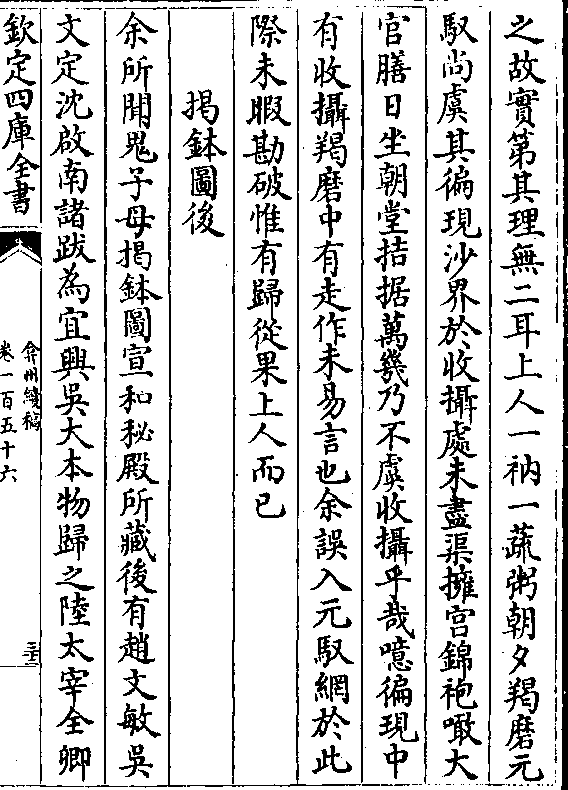 之故實第其理無二耳上人一衲一蔬粥朝夕羯磨元
馭尚虞其徧現沙界於收攝處未盡渠擁宫錦袍噉大
官膳日坐朝堂拮据萬幾乃不虞收攝乎哉噫徧現中
有收攝羯磨中有走作未易言也余誤入元馭網於此
際未暇勘破惟有歸從果上人而已
揭鉢圖後
余所聞鬼子母揭鉢圖宣和秘殿所藏後有趙文敏吳
文定沈啟南諸跋為宜興吳大本物歸之陸太宰全卿
欽定四庫全書
弇州續稿
卷一百五十六